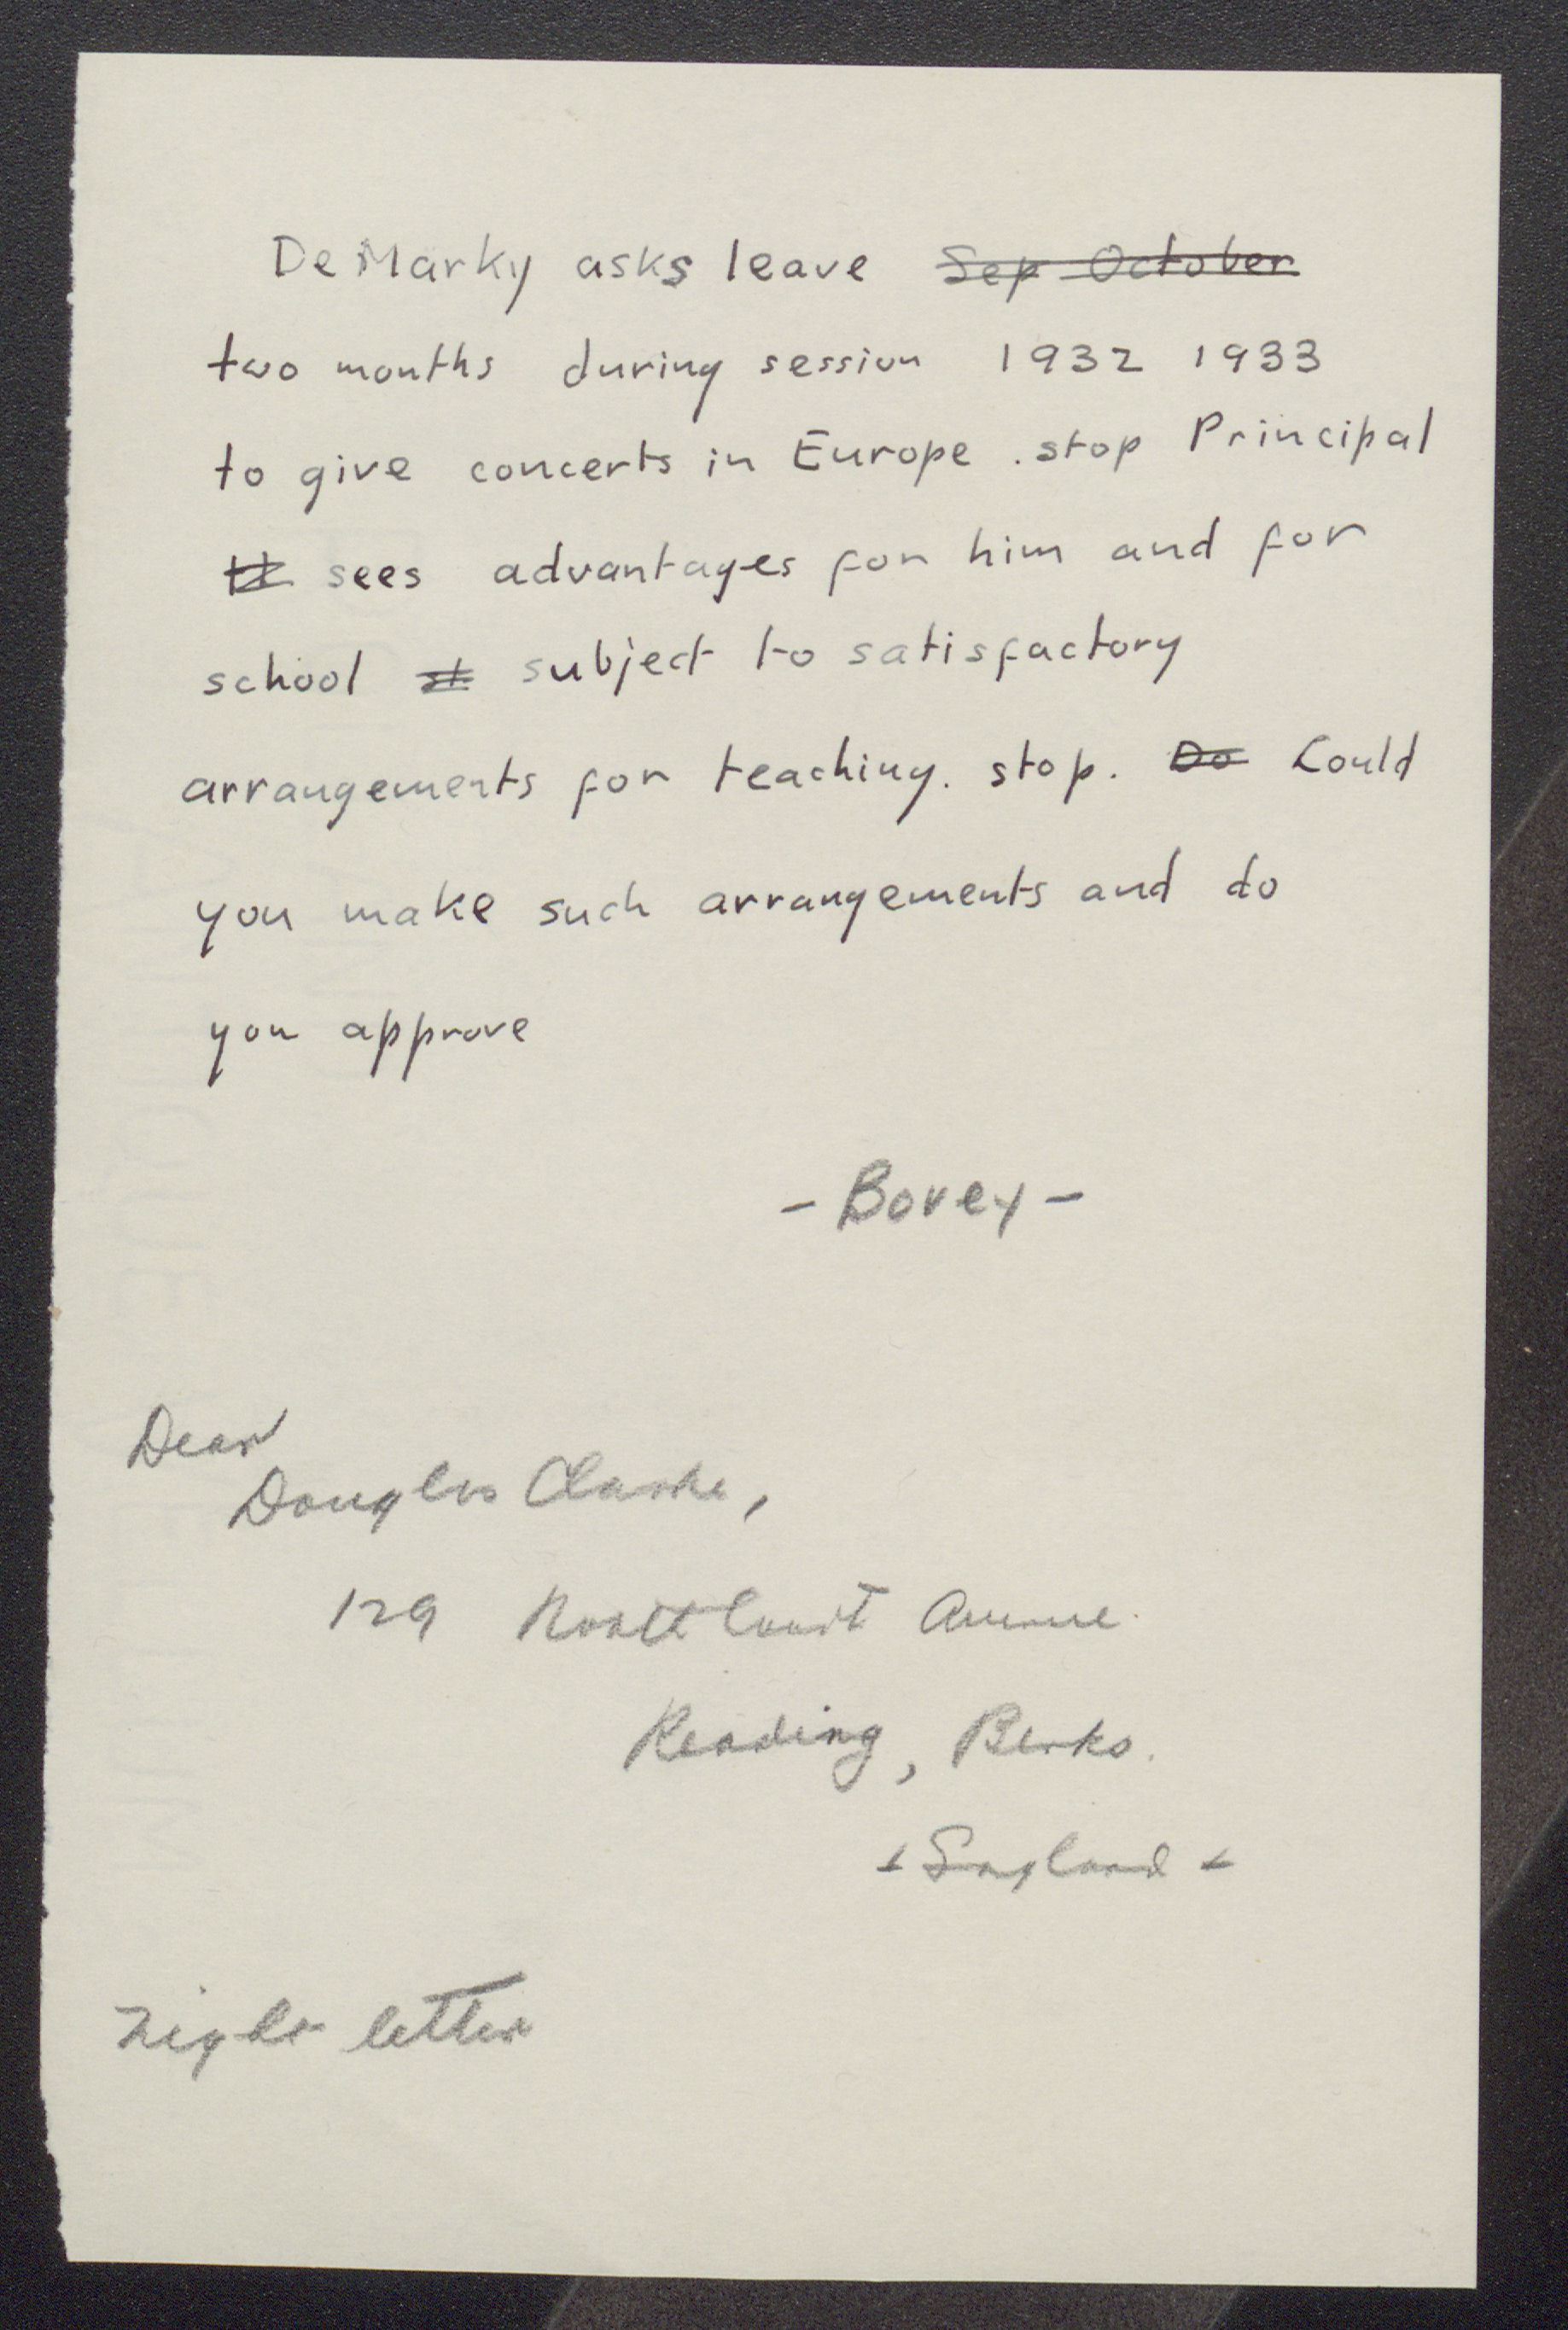 De Marky asks leave Sep October
two months during session 1932 1933
to give concerts in Europe . stop Principal
sees advantages for him and for
school st subject to satisfactory
arrangements for teaching. stop. Do Could
you make such arrangements and do
you approve
- Bovey -
Dean
Douglas Clarke,
129 Northcourt Avenue.
Reading, Berks.
- England -
Night letter